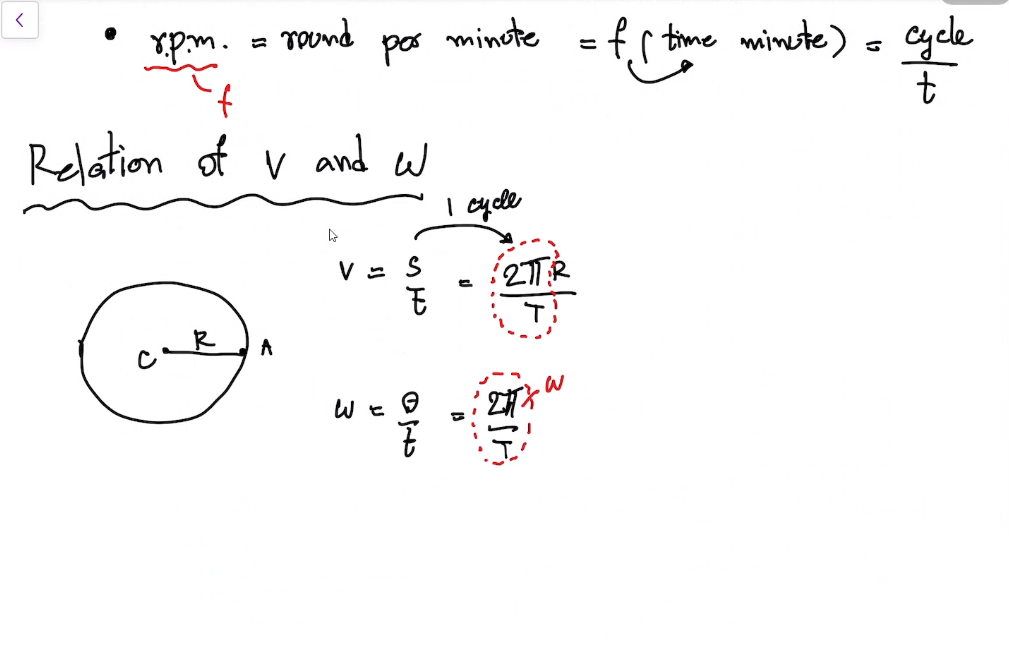 • r.p.m. = round per minute = f (time minute) = cycle/t
f
Relation of v and ω
1 cycle
v = s/t = 2πR/T
C R A
ω = θ/t = 2π/T ω